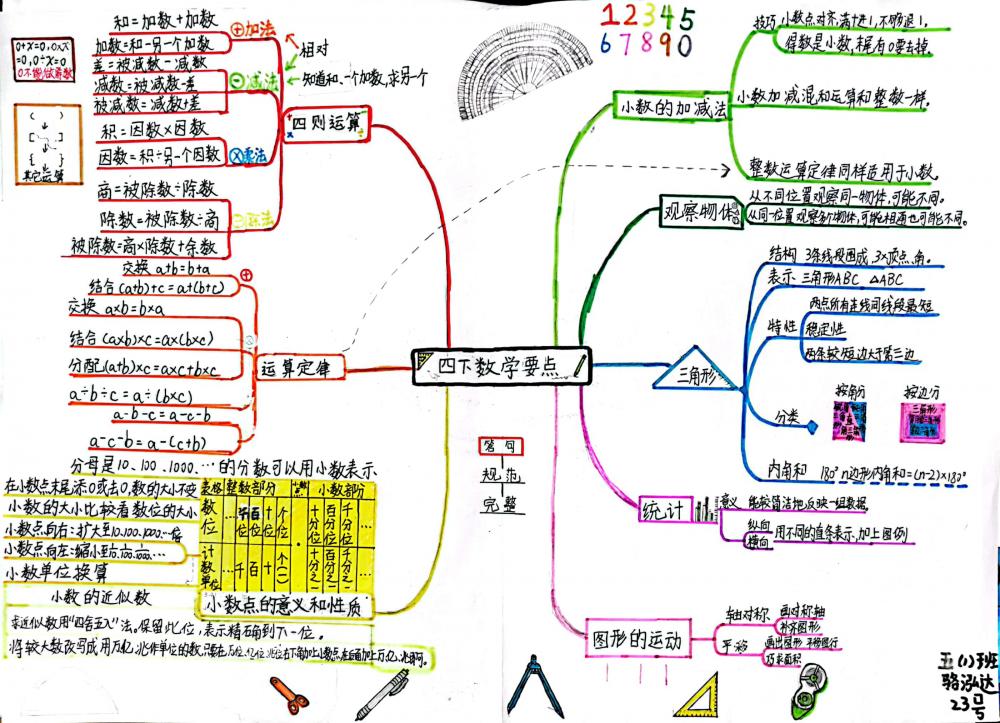 四下数学要点
四则运算
⊕加法
和=加数+加数
加数=和-另一个加数
⊖减法
差=被减数-减数
减数=被减数-差
被减数=减数+差
相对
知道和、一个加数,求另一个
⊗乘法
积=因数×因数
因数=积÷另一个因数
除法
商=被除数÷除数
除数=被除数÷商
被除数=商×除数+余数
0+x=0,0×x
=0,0÷x=0
0不能做除数
( )
↓
[ ]
↓
{ }
↓
其它运算
运算定律
⊕
交换 a+b=b+a
结合(a+b)+c=a+(b+c)
交换 a×b=b×a
结合(a×b)×c=a×(b×c)
分配(a+b)×c=a×c+b×c
a÷b÷c=a÷(b×c)
a-b-c=a-c-b
a-c-b=a-(c+b)
分母是10、100、1000、…的分数可以用小数表示
在小数点末尾添0或去0,数的大小不变
小数的大小比较看数位的大小
小数点向右:扩大至10.100.1000…倍
小数点向左:缩小至
小数单位换算
小数的近似数
求近似数用"四舍五入"法。保留此位,表示精确到下一位。
将较大数改写成用万、亿、兆作单位的数,只要在万位、亿位、兆位右下角加上小数点,在后面加上万、亿、兆即可。
表格 整数部分 小数部分
数位 … 千位 百位 十位 个位 十分位 百分位 千分位 …
计数单位 … 千 百 十 个(一) 十分之一 百分之一 千分之一 …
小数点的意义和性质
1 2 3 4 5
6 7 8 9 0
小数的加减法
技巧 小数点对齐,满十进1,不够退1。
得数是小数,末尾有0要去掉。
小数加减混和运算和整数一样。
整数运算定律同样适用于小数。
观察物体
从不同位置观察同一物体,可能不同。
从同一位置观察多个物体,可能相通也可能不同。
三角形
结构 3条线段围成 3×顶点、角。
表示 三角形ABC △ABC
特性
两点所有连线间线段最短
稳定性
两条较短边大于第三边
分类
按角分
按边分
内角和 180° n边形内角和=(n-2)×180°
统计
意义 能较简洁地反映一组数据。
纵向
横向
用不同的直条表示,加上图例
图形的运动
轴对称
画对称轴
补齐图形
平移
画出图形,平移几行
巧求面积
答句
规范
完整
五(1)班
骆泓达
23号